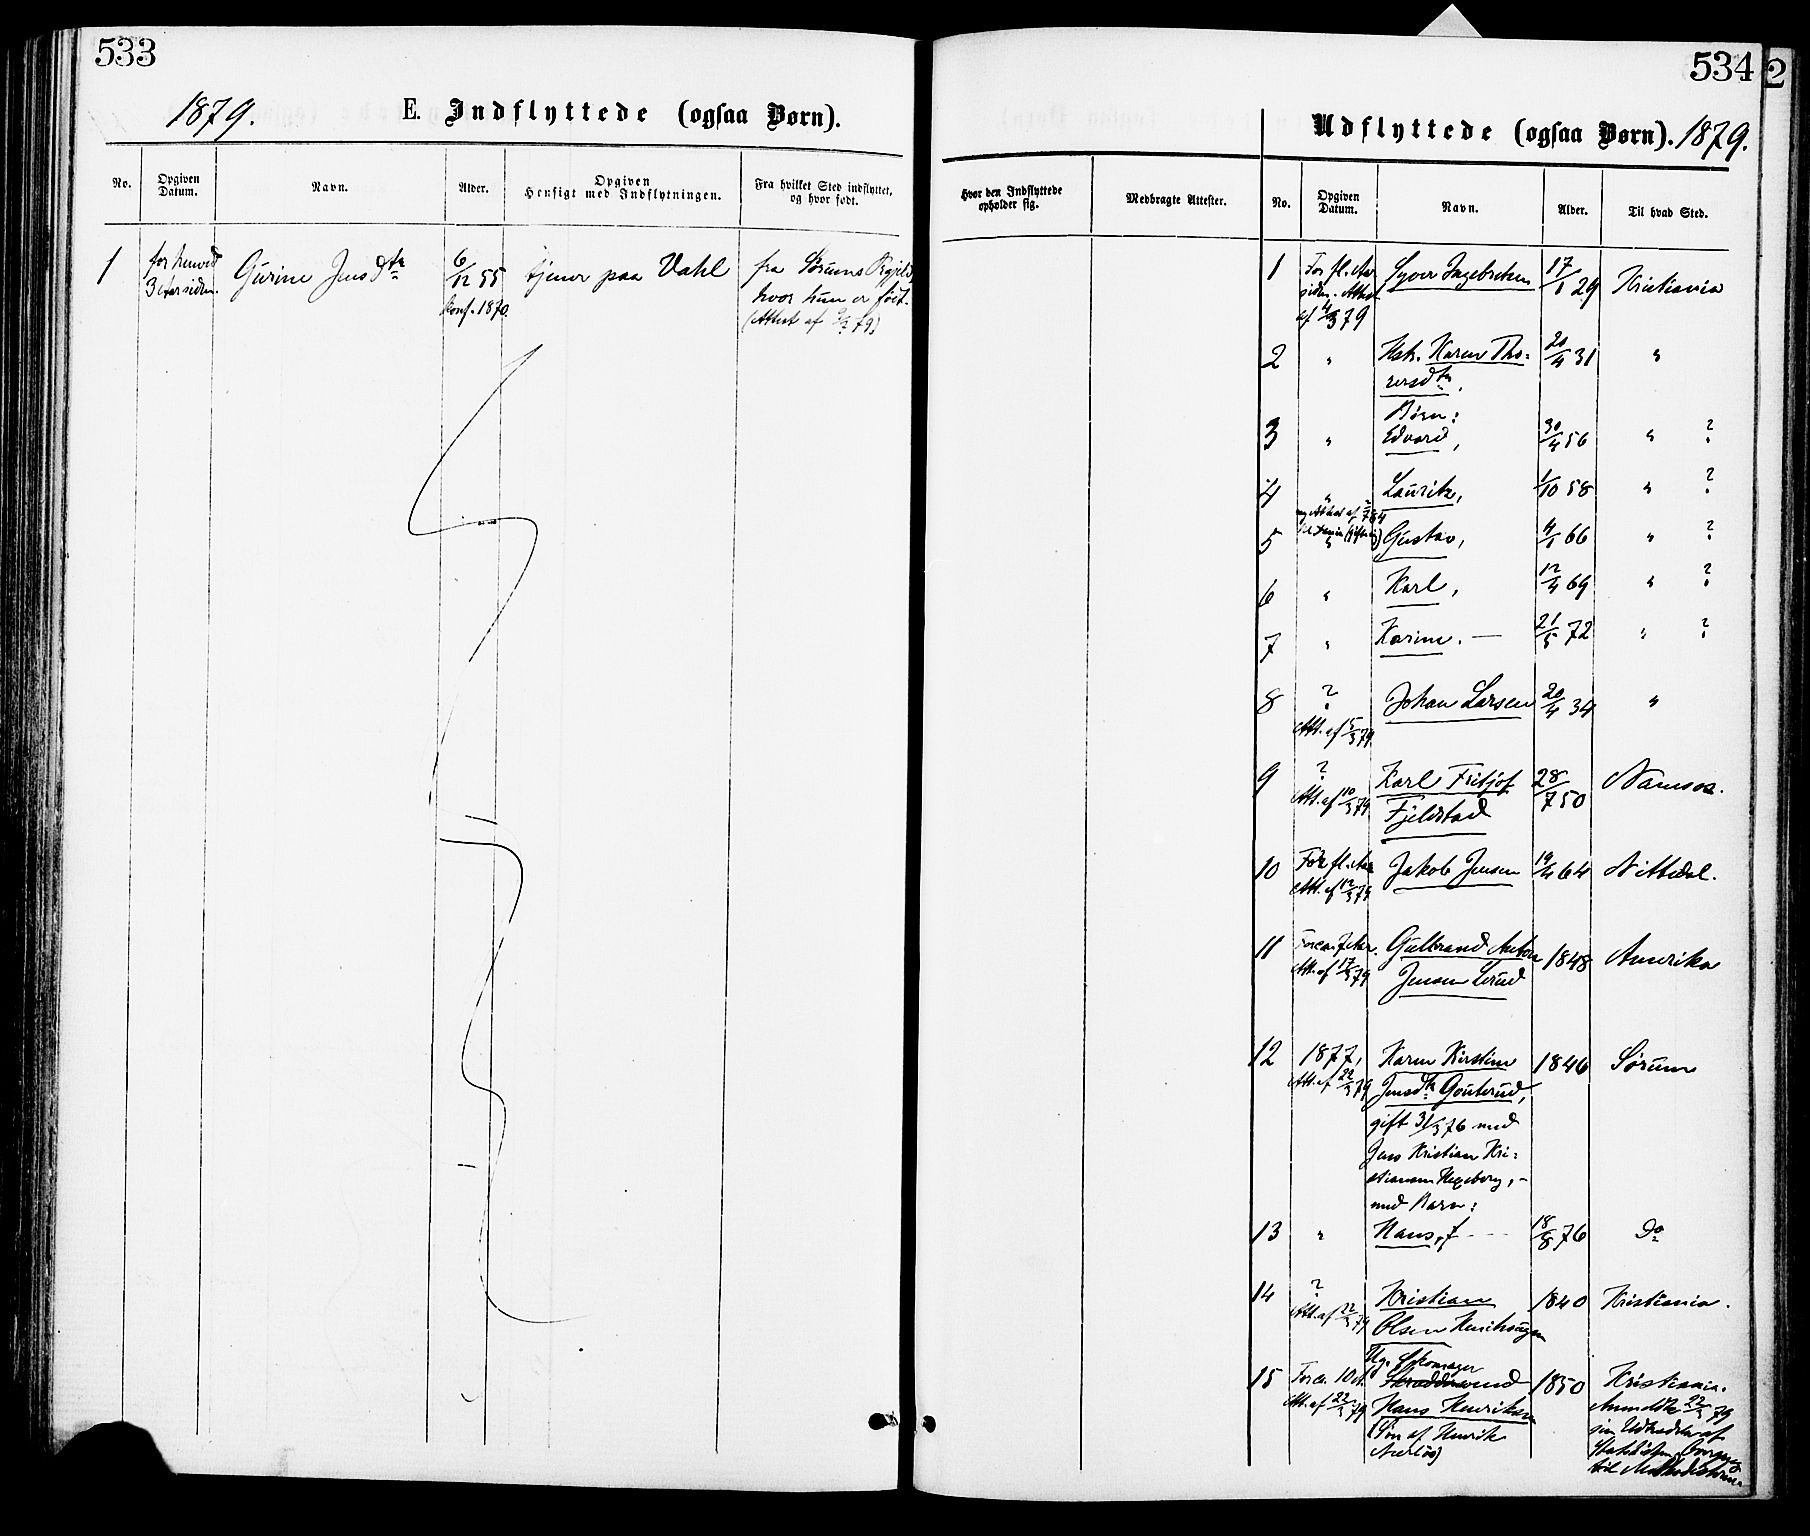 533
1879.
E. Indflyttede (ogsaa Børn).
No.
Opgiven
Datum.
Navn.
Alder.
Opgiven
Hensigt med Indflytningen.
Fra hvilket Sted indflyttet,
og hvor født.
1
for henved
3 Aar siden.
Gurine Jensdtr
6/12 55
Konf. 1870.
tjener paa Vahl
fra Sørums Prgjeld,
hvor hun er født.
(Attest af 79)
534
2
Udflyttede (ogsaa Børn). 1879.
Hvor den Indflyttede
opholder sig.
Medbragte Attester.
No.
Opgiven
Datum.
Navn.
Alder.
Til hvad Sted.
1
For fl. Aar
siden. Attest
af 4/3 79
Syver Ingebretsen
17/1 29
Kristiania
2
"
Hstr. Karen Tho-
rersdtr,
20/4 31
"
Børn:
3
"
Edvard,
30/4 56
" ?
4
"
Laurits,
1/10 58
" ?
5
"
Gustav,
4/1 66
" ?
6
"
Karl,
12/4 69
" ?
7
"
Karine. —
21/5 72
" ?
8
?
Att. af 5/3 79
Johan Larsen
20/4 34
"
9
?
Att. af 10/3 79
Karl Fritjof
Fjeldstad
28/7 50
Namsos.
10
For fl. Aar
Att. af 12/3 79
Jakob Jensen
19/4 64
Nittedal.
11
For ca. 7 Aar.
Att. af 17/3 79
Gulbrand Anton
Jensen Lerud
1848
Amerika
12
1877,
Att. af 22/3 79
Karen Kirstine
Jensdtr Gouterud,
gift 31/3 76 med
Jens Kristian Kri-
stiansen Hegeberg, -
med Barn:
1846
Sørum
13
"
Hans, f —
18/8 76
Do
14
?
Att. af 22/3 79
Kristian
Olsen
1840
Kristiania.
15
For ca. 10
Att. af 22/3 79
Ug. Skomager
Hans Henriksen
(Søn af Henrik
1850
Kristiania.
Anmeldte 22/3 79
sin Udtrædelse af
Statskirken, Overgang
til Methodisterne.